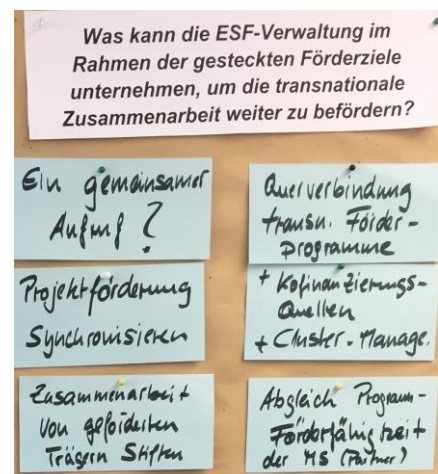 Was kann die ESF-Verwaltung im
Rahmen der gesteckten Förderziele
unternehmen, um die transnationale
Zusammenarbeit weiter zu befördern?
Ein gemeinsamer
Aufruf ?
Projektförderung
Synchronisieren
Zusammenarbeit
von geförderten
Trägern Stiften
Querverbindung
transn. Förder-
programme
+ Kofinanzierungs-
Quellen
+ Cluster-Manage.
Abgleich Programm-
Förderfähigkeit
der MS (Partner)